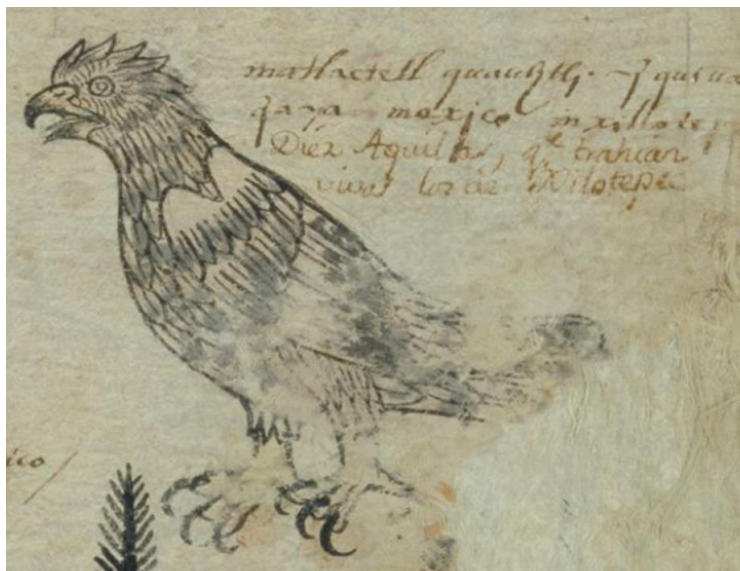 matlactetl quauhtli. y quiua
qaya mexico in xillotep
Diez Aguilas, qe trahian
vivas los de Xilotepec
ico /